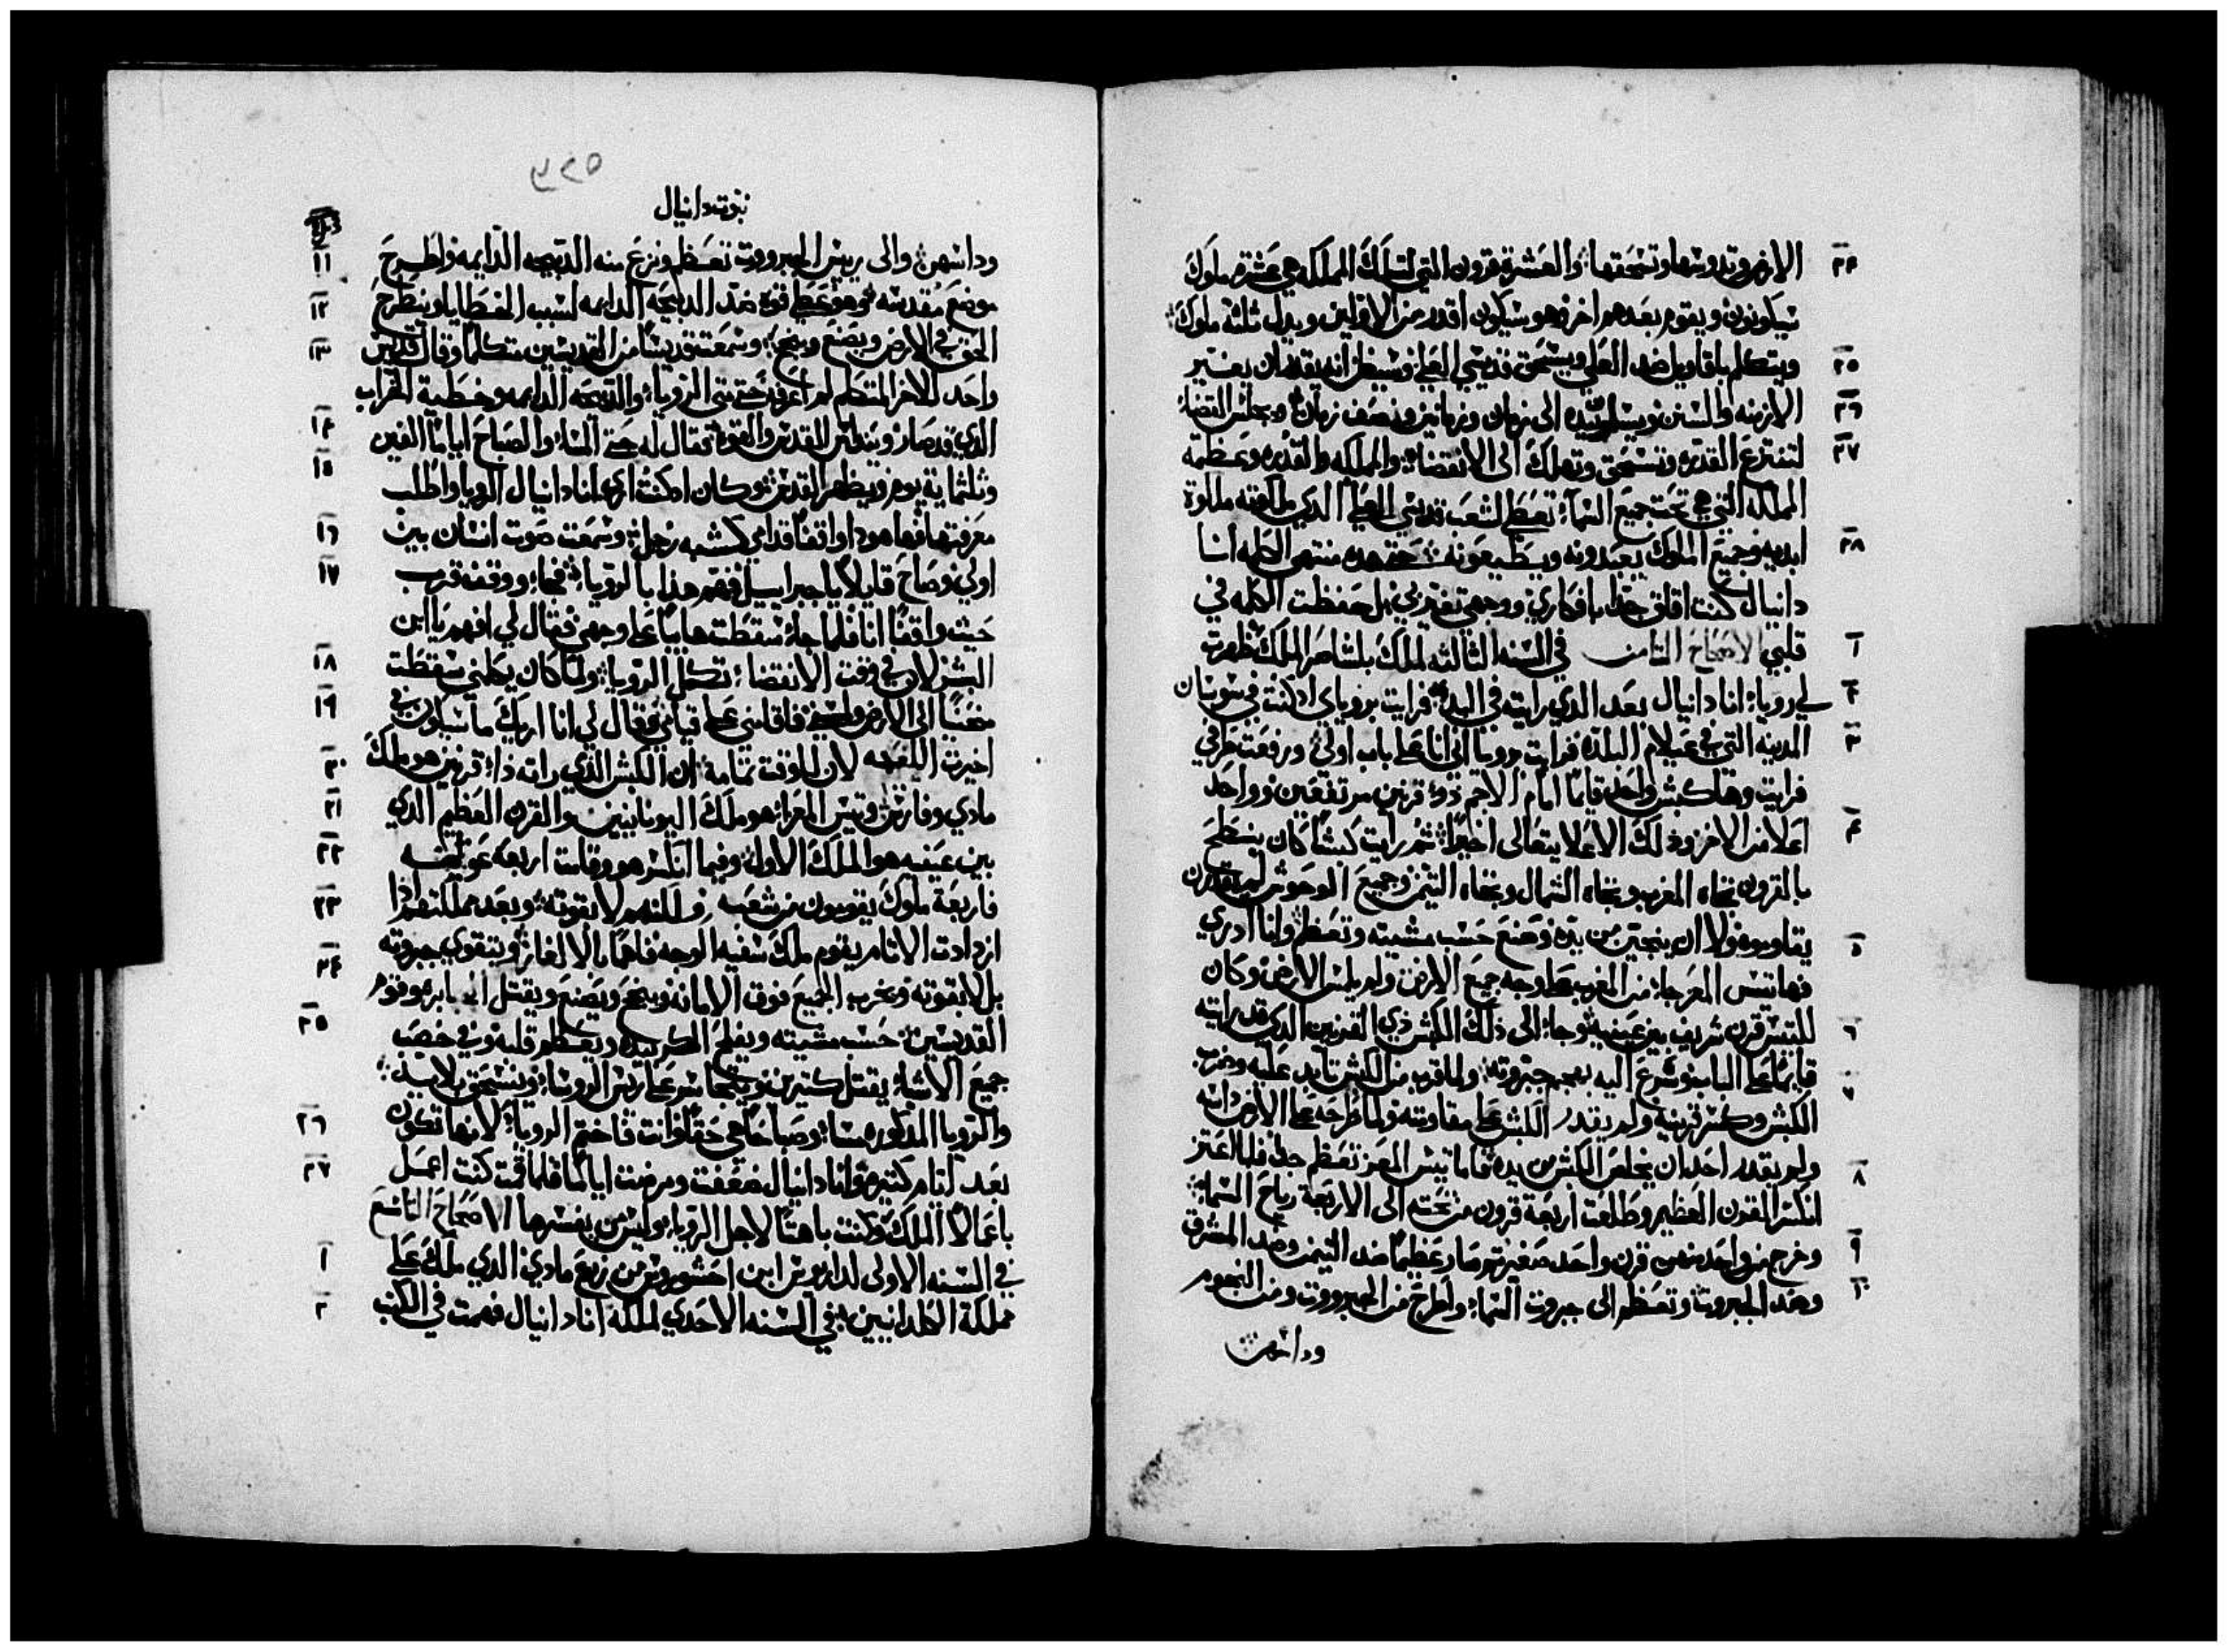 ٢٤ الارض وتدوسها وتسحقها؛ والعشرة قرون التي لتلك المملكه هي عشرة ملوك
سيكونون ويقوم بعدهم اخر وهو سيكون اقدر من الاولين ويدل ثلثة ملوك؛
٢٥ ويتكلم باقاويل ضد العلي ويسحق قديسي العلي وسيظن انه يقدر ان يغير
٢٦ الازمنه والسنن ويسلمون بيده الى زمان وزمانين ونصف زمان؛ ويجلس القضاء
٢٧ لتنتزع القدره وتنسحق وتهلك الى الانقضاء؛ والمملكه والقدره وعظمة
المملكه التي هي تحت جميع السماء؛ تعطى لشعب قديسي العلي الدي ملكوته ملكوة
٢٨ ابديه وجميع الملوك يعبدونه ويطيعونه؛ حتى هده منتهى الكلمه انا
دانيال كنت اقلق جدا بافكاري ووجهي تغير بي بل حفظت الكلمه في
١ قلبي الاصحاح الثامن في السنه الثالثه لملك بلشاصر الملك ظهرت
٢ لي رويا؛ انا دانيال بعد الدي رايته في البدء؛ فرايت بروياي اد كنت في سوسان
٣ المدينه التي في عيلام البلده فرايت برويا اني انا على باب اولي ورفعت طرفي
فرايت وهادا كبش واحد قايما امام الاجم ذو قرنين مرتفعين وواحد
٤ اعلا من الاخر وذلك الاعلا يتعالى اخيرا؛ ثم رايت كبشا كان ينطح
بالقرون تجاه المغرب وتجاه الشمال وتجاه التيمن وجميع الوحوش لم يقدرن
٥ يقاوموه ولا ان ينجين من يده وصنع حسب مشيته وتعظم وانا ادري
فها تيس المعز جاء من المغرب على وجه جميع الارض ولم يلمس الارض وكان
٦ للتيس قرن شريف بين عينيه؛ وجاء الى ذلك الكبش ذي القرنين الدي قد رايته
٧ قايما على الباب وشرع اليه بهجم جبروته؛ ولما قرب من الكبش تايد عليه وضرب
الكبش وكسر قرنيه ولم يقدر الكبش على مقاومته ولما طرحه على الارض داسه
٨ ولم يقدر احد ان يخلص الكبش من يده فاما تيس المعز تعظم جدا فلما اعتز
انكسر القرن العظيم وطلعت اربعة قرون من تحته الى الاربعة رياح السماء؛
٩ وخرج من واحد منهن قرن واحد صغير ثم صار عظيما ضد التيمن وضد المشرق
١٠ وضد الجبروت وتعظم الى جبروت السماء؛ واطرح من الجبروت ومن النجوم
وداسهن
٥٢٣
نبوت دانيال
١١ وداسهن؛ والى رييس الجبروت تعظم ونزع منه الدبيحه الدايمه واطرح
١٢ موضع مقدسه؛ وهو عطي قوة ضد الدبايحه الدايمه لسبب الخطايا وينطرح
١٣ الحق في الارض ويصنع وينجح؛ وسمعت قديسا من القديسين متكلما وقال قديس
واحد للاخر المتكلم لم اعرفه حتى متى الرويا؛ والدبيحه الدايمه وخطية الخراب
١٤ الدي قد صار ويندلس القدس والقوة؛ فقال له حتى المساء والصباح اياما الفين
١٥ وثلثماية يوم ويظهر القدس؛ وكان اد كنت ارى انا دانيال الرويا واطلب
١٦ معرفتها فهاهودا واقفا قدامي كشبه رجل؛ وسمعت صوت انسان بين
١٧ اولي وصاح قايلا يا جبراييل فهم هدا بالرويا؛ فجاء ووقف قرب
حيث واقفا انا فلما جاء سقطت هايبا على وجهي فقال لي افهم يا ابن
١٨ البشر لان في وقت الانقضاء تكمل الرويا؛ ولما كان يكلمني سقطت
١٩ مغشيا الى الارض ولمسني فاقامني على قيامي وقال لي انا اريك ما سيكون في
٢٠ اخيرت اللعنه لان للوقت تمامه؛ ان الكبش الذي راته ذا قرنين هو ملك
٢١ مادي وفارس؛ وتيس المعز هو ملك اليونانيين والقرن العظيم الدي
٢٢ بين عينيه هو الملك الاول؛ وفيما انكسر هو وقامت اربعة عوض منه
٢٣ فاربعة ملوك يقومون من شعبه ولكنهم لا بقوته؛ وبعد مملكتهم اذا
٢٤ ازدادت الاثام يقوم ملك سفيه الوجه فاهما بالالغاز؛ ويتقوى جبروته
بل لا بقوته ويخرب الجميع فوق الامانه وينجح ويصنع ويقتل الجبابره وقوم
٢٥ القديسين؛ حسب مشيته ويفلح المكر بيده ويعظم قلبه وفي خصب
جميع الاشياء يقتل كثيرين ويتجاسر على رييس الروسا؛ وينسحق بلا يد؛
٢٦ والرويا المدكوره مساء وصباحا هي حقا وانت فاختم الرويا؛ لانها تكون
٢٧ بعد ايام كثيره؛ وانا دانيال ضعفت ومرضت اياما فلما قمت كنت اعمل
باعمال الملك وكنت باهتا لاجل الرويا؛ وليس من يفسرها الاصحاح التاسع
١ في السنه الاولى لداريوس ابن احشوروس من زرع مادي الدي ملك على
٢ مملكة الكلدانيين؛ في السنه الاحدي لملكه انا دانيال فهمت في الكتب